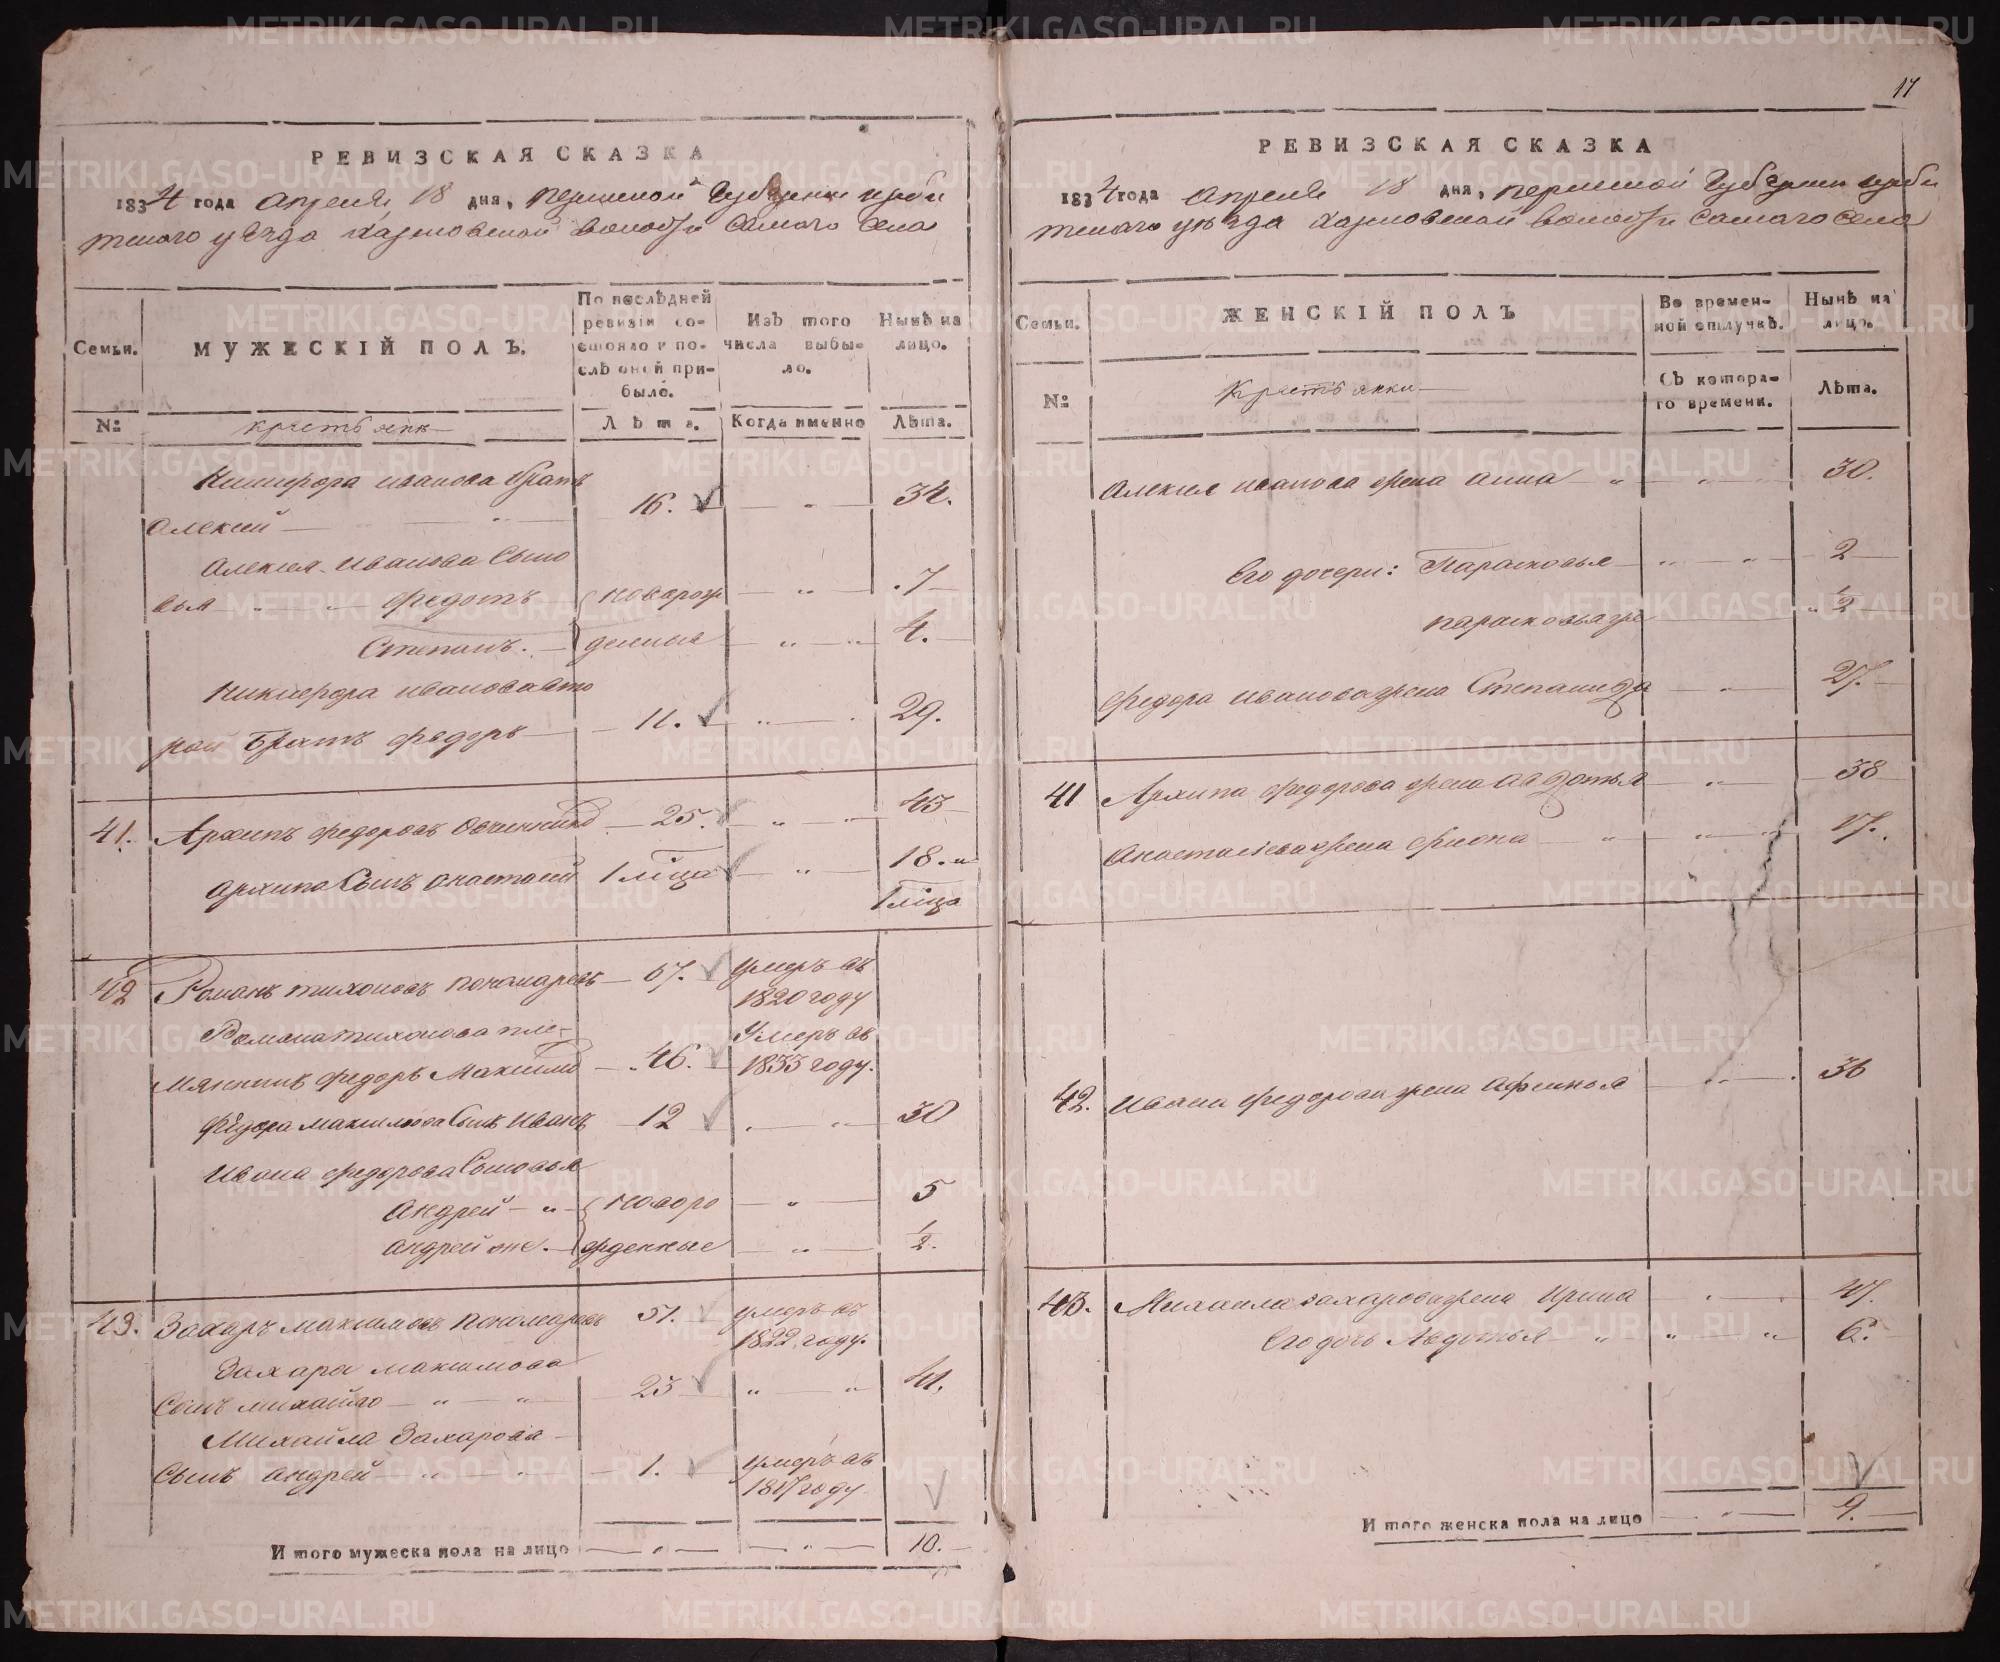 17
РЕВИЗСКАЯ СКАЗКА
1834 года апреля 18 дня, пермской губернии ирби
тского уѣзда харловской волости самаго села
Семьи.
МУЖЕСКІЙ ПОЛЪ.
По послѣдней ревизіи состояло и послѣ оной прибыло.
Изъ того числа выбыло.
Нынѣ на лицо.
№
крестьяне
Лѣта.
Когда именно
Лѣта.
Никифора иванова братъ
алексей 16. 34.
алексея иванова сыно
вья федотъ новорож 7
Степанъ. денныя 4.
Никифора иванова вто
рой братъ федоръ 11. 29.
41. Архипъ федоровъ Овчинник 25. 43
архипа сынъ анастасей 1 мѣца 18. и
1 мѣца
42 Романъ тихоновъ пономаревъ 67. умеръ въ
1820 году
Романа тихонова пле-
мянникъ федоръ Максимов 46. Умеръ въ
1833 году.
федора максимова сынъ иванъ 12 30
ивана федорова сыновья
андрей новоро 5
андрей же. жденные 1/2.
43. Захаръ максимовъ пономаревъ 51. умеръ въ
1822 году.
Захара максимова
сынъ михайло 23 41.
Михайла Захарова
сынъ андрей 1. умеръ въ
1817 году
И того мужеска пола на лицо 10.
РЕВИЗСКАЯ СКАЗКА
1834 года апреля 18 дня, пермской губернии ирби
тского уѣзда харловской волости самаго села
Семьи.
ЖЕНСКІЙ ПОЛЪ
Во временной отлучкѣ.
Нынѣ на лицо.
№
Крестьянки
Съ котораго времени.
Лѣта.
Алексея иванова жена анна 30.
Его дочери: Парасковья 2
парасковья же 1/2
федора иванова жена Степанида 27.
41 Архипа федорова жена авдотья 38
анастасіева жена фиона 17.
42. Ивана федорова жена афимья 36
43. Михаила захарова жена ирина 47.
Его дочь Авдотья 6.
И того женска пола на лицо 9.
METRIKI.GASO-URAL.RU